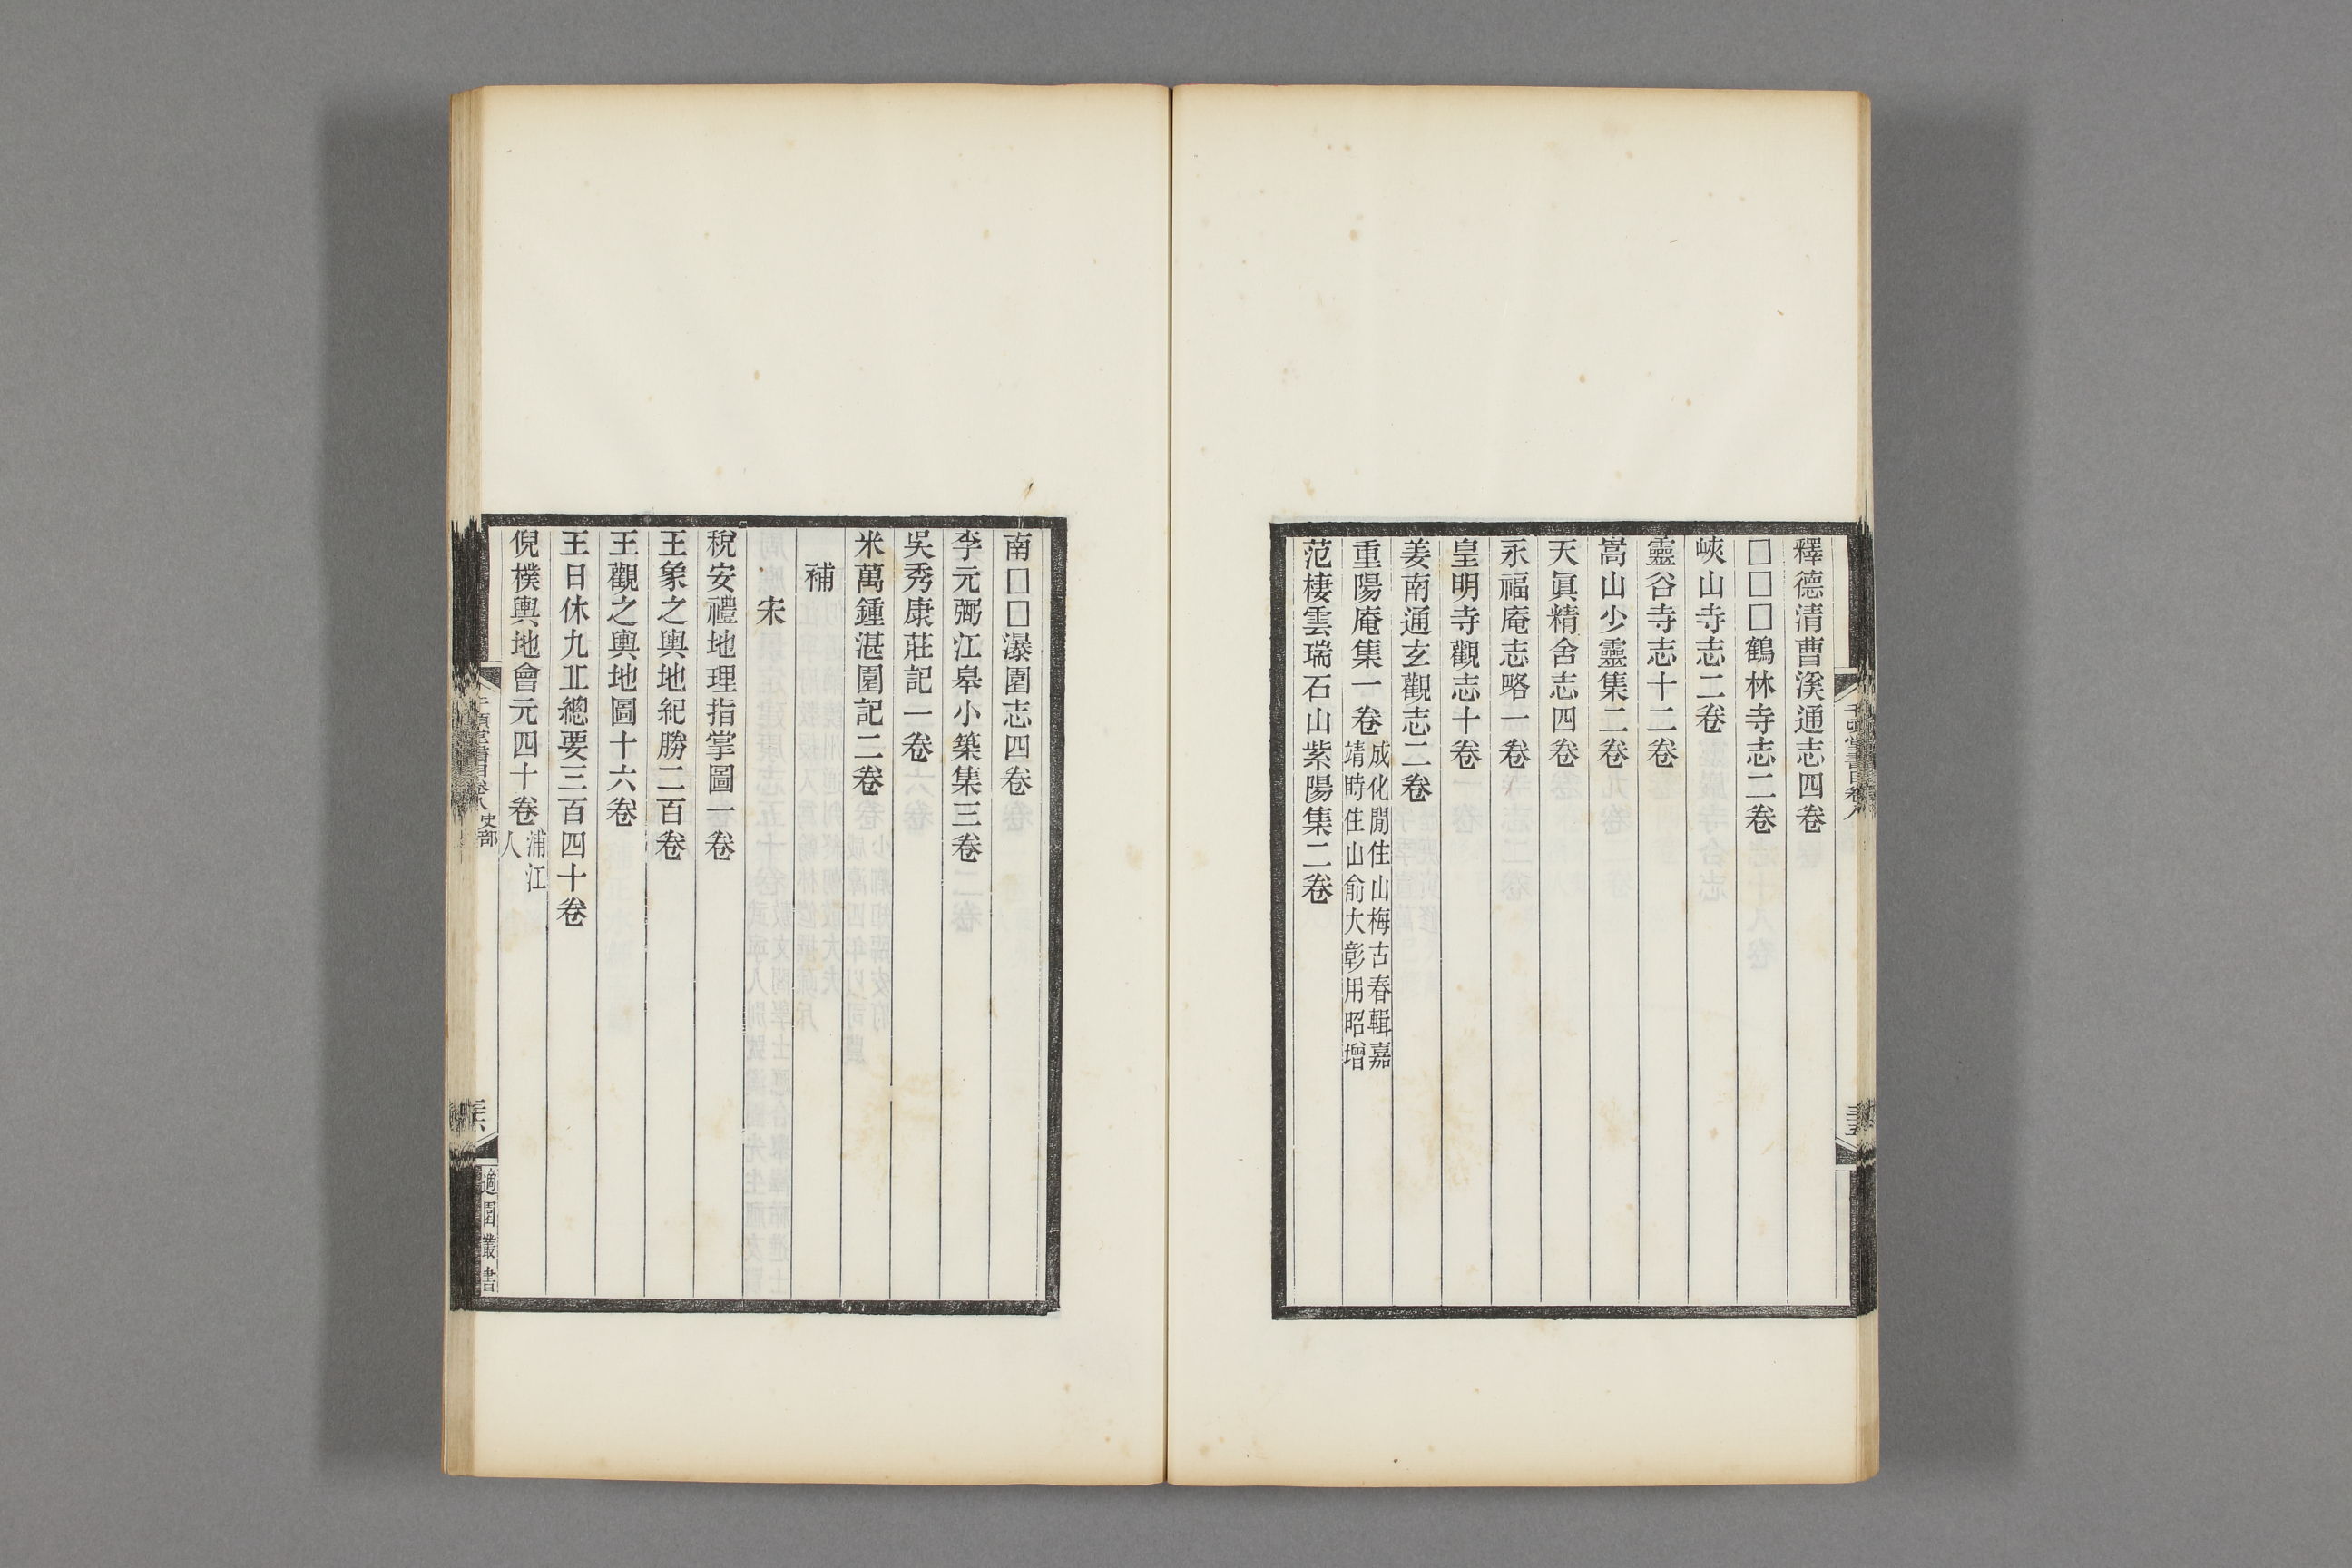 釋德清曹溪通志四卷
□□□鶴林寺志二卷
峽山寺志二卷
靈谷寺志十二卷
嵩山少靈集二卷
天眞精舍志四卷
永福庵志略一卷
皇明寺觀志十卷
姜南通玄觀志二卷
重陽庵集一卷成化閒住山梅古春輯嘉
靖時住山俞大彰用昭增
范棲雲瑞石山紫陽集二卷
南□□瀑園志四卷
李元弼江皋小築集三卷
吳秀康莊記一卷
米萬鍾湛園記二卷
補
宋
稅安禮地理指掌圖一卷
王象之輿地紀勝二百卷
王觀之輿地圖十六卷
王日休九丘總要三百四十卷
倪樸輿地會元四十卷浦江
人
千頃堂書目卷八 史部
三六
適園叢書